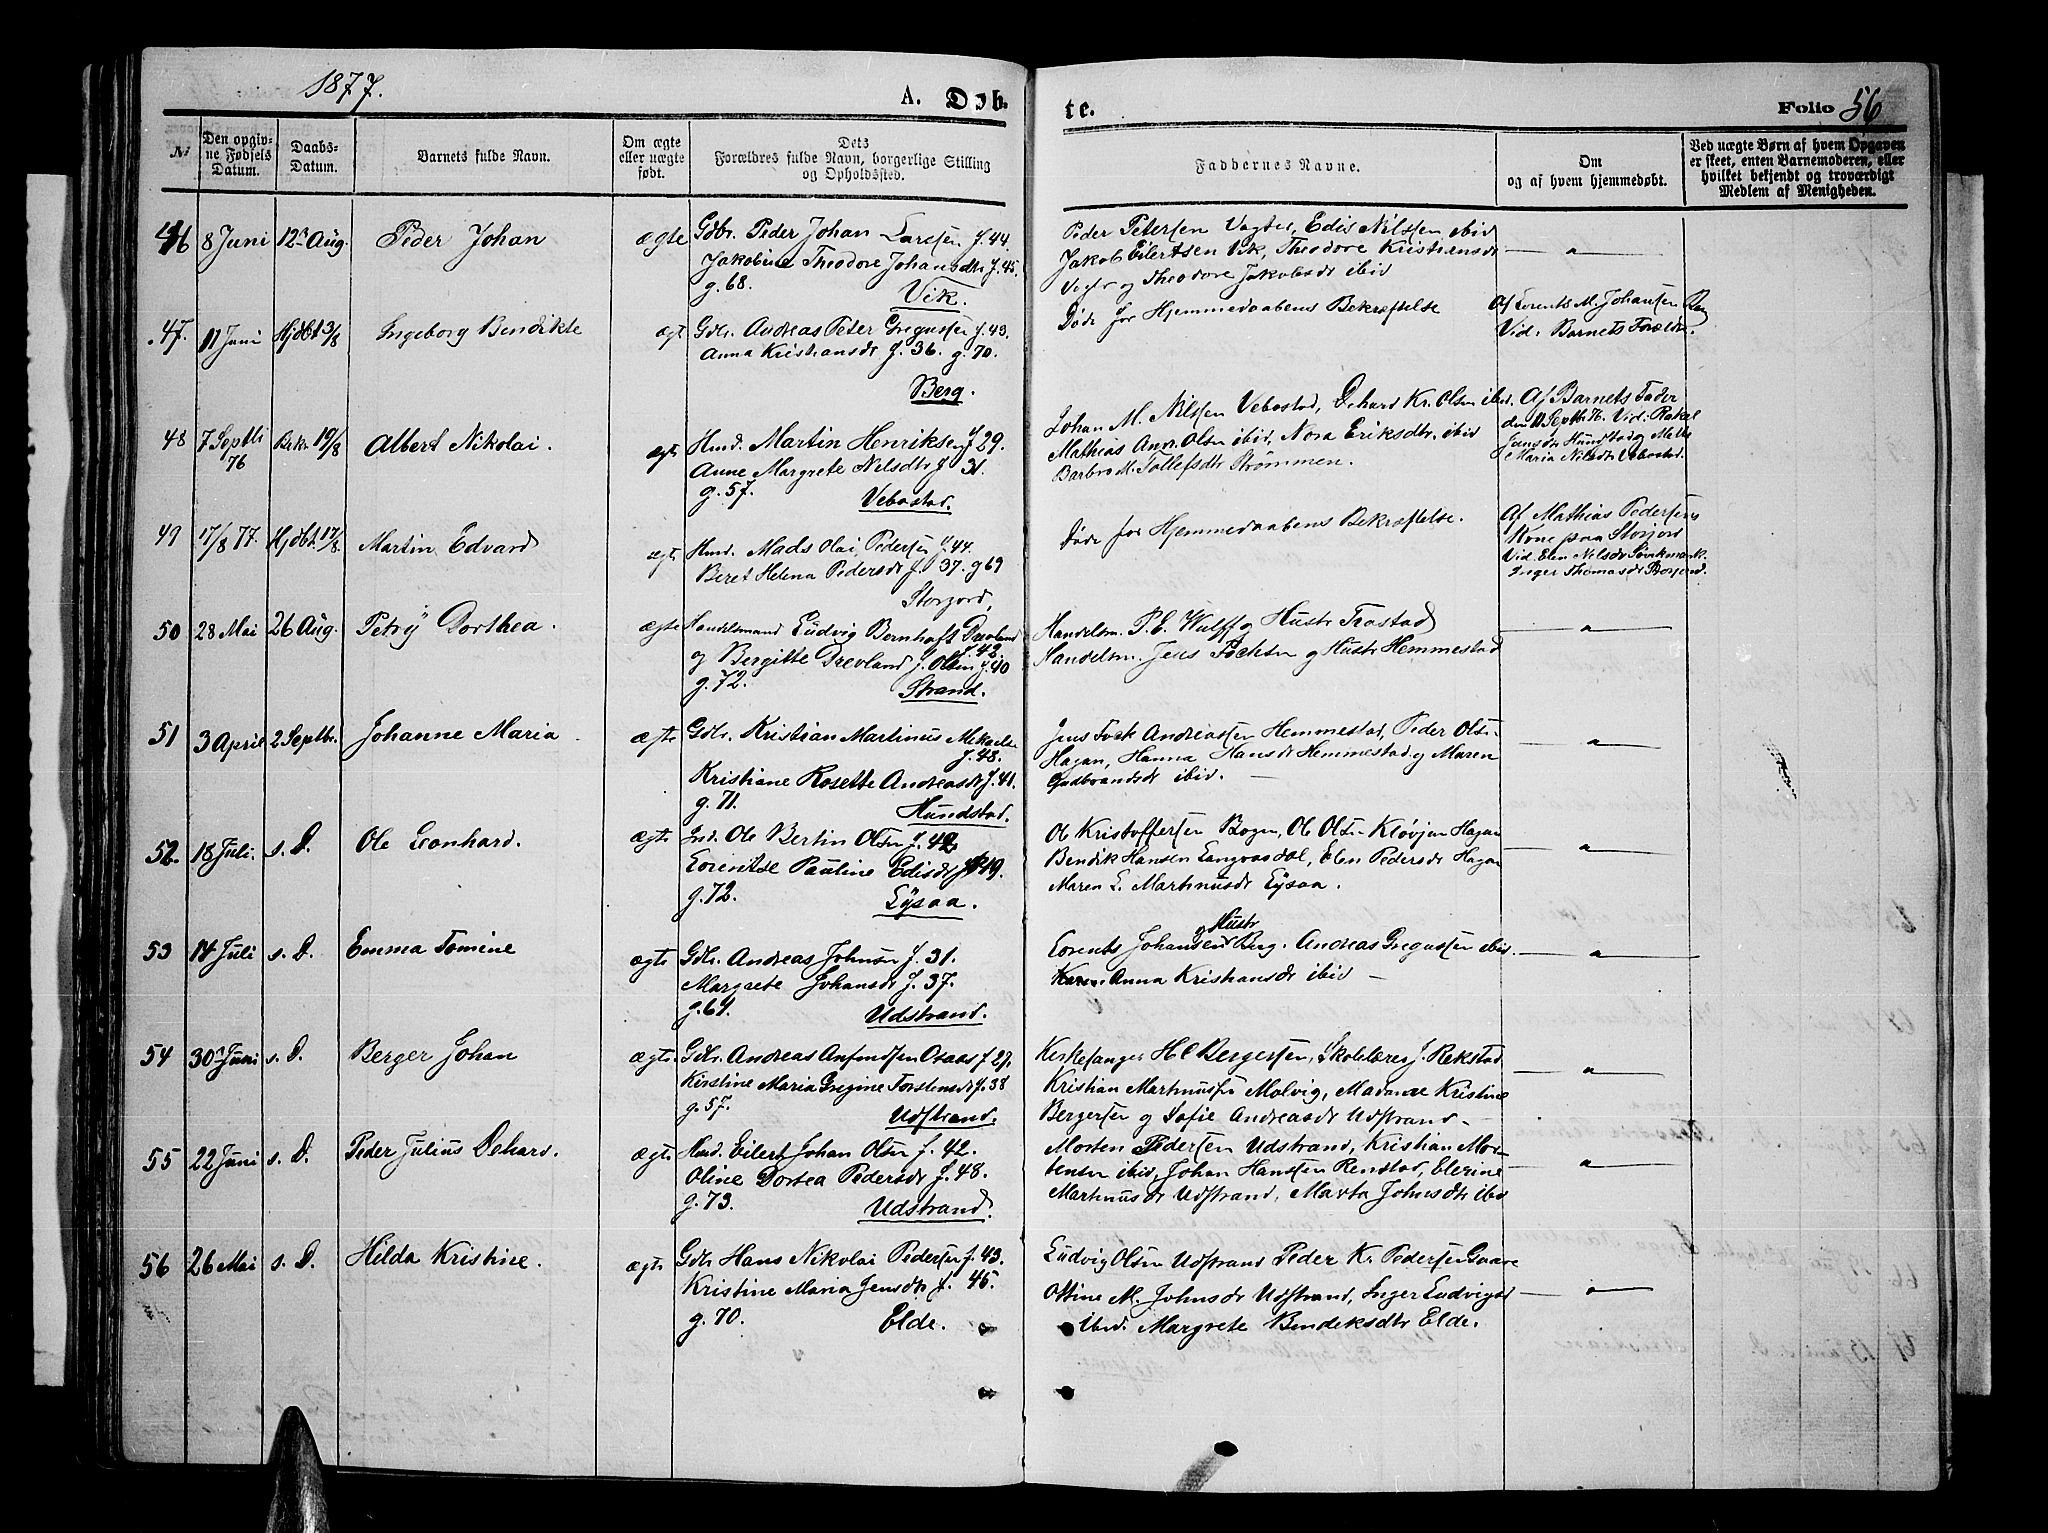 1877.
A. Døb-
te.
Folio 56
No
Den opgiv-
ne Fødsels
Datum.
Daabs-
Datum.
Barnets fulde Navn.
Om ægte
eller uægte
født.
Dets
Forældres fulde Navn, borgerlige Stilling
og Opholdssted.
Faddernes Navne.
Om
og af hvem hjemmedøbt.
Ved uægte Børn af hvem Opgaven
er skeet, enten Barnemoderen, eller
hvilket bekjendt og troværdigt
Medlem af Menigheden.
46 8 Juni 12 Aug. Peder Johan ægte
Gdbr. Peder Johan Larssen f. 44.
Jakobine Theodore Johansdtr f. 45.
g. 68.
Vik.
Peder Petersen Vagter, Edis Nilssen ibid
Jakob Eilertsen Vik, Theodore Kristiansdr
og Theodore Jakobsdr ibid
— a —
47. 11 Juni Hjdbt 3/8 Ingeborg Bendikte ægt
Gdbr. Andreas Peter Gregussen f. 43.
Anna Kristiansdr f. 36. g. 70.
Berg.
Døde før Hjemmedaabens Bekræftelse
Af Lorents M. Johansen
Vid. Barnets Forældre.
48 7 Septbr 76 Bekr. 19/8 Albert Nikolai. ægt
Hmd. Martin Henriksen f. 29.
Anne Margrete Nelsdtr f. 31.
g. 57.
Vebostad.
Johan M. Nilssen Vebostad, Dehard Kr. Olsen ibid.
Mathias Andr. Olsen ibid, Nora Eriksdtr. ibid
Barbro M. Tollefsdtr Strømmen.
Af Barnets Fader
den 11 Septbr 76. Vid. Rakel
Jansdr Hundstad og Mette
Maria Nilsdr Vebostad.
49 17/8 77. Hjdbt. 17/8. Martin Edvard ægt
Hmd. Mads Olai Pedersen f. 44.
Beret Helena Pedersdr f. 37. g 69
Storjord,
Døde før Hjemmedaabens Bekræftelse.
Af Mathias Pedersens
Kone paa Storjord
Vid Elen Nelsdr Sørkmark.
Inger Thomasdr Storjord.
50 28 Mai 26 Aug. Petry Dorthea. ægte
Handelsmand Ludvig Bernhoft Drevland
f. 42
og Bergitte Drevland f. Olsen f. 40
g. 72.
Strand.
Handelsm. P. C. Wulff og Hustr Trastad
Handelsm. Jens Fochsen og Hustr Hemmestad
— a —
51 3 April 2 Septbr. Johanne Maria ægte
Gdbr. Kristian Martinus Mikaels.
f. 48.
Kristiane Rosette Andreasdr f. 41.
g. 71.
Hundstad.
Jens Fock Andreassen Hemmestad, Peder Olsen
Hagan, Hanna Hansdr Hemmestad og Maren
Gudbrandsdr ibid.
— a —
52. 18 Juli. s. D. Ole Leonhard. ægte
Ind. Ole Bertin Olsen f. 42
Lorentse Pauline Edisdr f. 49.
g. 72.
Lysaa.
Ole Kristoffersen Bogen, Ole Olsen Kløvjen Hagan
Bendik Hansen Langvasdal, Elen Pedersdr Hagan
Maren L. Martinusdr Lysaa.
— a —
53 14 Juli s. D. Emma Tomine ægte
Gdbr. Andreas Johnsen f. 31.
Margrete Johansdr f. 37.
g. 61.
Udstrand.
og Hustr
Lorents Johansen Berg. Andreas Gregussen ibid.
Karen Anna Kristiansdr ibid —
— a —
54 30 Juni s. D. Berger Johan ægte
Gdbr. Andreas Anfindsen Osaas f. 27.
Kirstine Maria Gregine Torstensdr f. 38
g. 57.
Udstrand.
Kirkesanger H C Bergersen, Skolelærer J. Rekstad
Kristian Martinussen Molvig, Madame Kristine
Bergersen og Sofie Andreasdr Udstrand —
— a —
55 22 Juni s. D. Peder Julius Dehard. ægte
Hmd. Eilert Johan Olsen f. 42.
Oline Dortea Pedersdr f. 48.
g. 73.
Udstrand.
Morten Pedersen Udstrand, Kristian Mor-
tensen ibid, Johan Hanssen Renstad, Elerine
Martinusdr Udstrand, Marta Johnsdtr ibid
— a —
56 26 Mai s. D. Hilda Kristine. ægte
Gdbr Hans Nikolai Pedersen f. 43.
Kristine Maria Jensdtr f. 45.
g. 70.
Elde.
Ludvig Olsen Udstrand Peder K. Pedersen Gaare
Ottine M. Johnsdr Udstrand, Inger Ludvigsd
ibid. Margrete Bendiksdtr Elde.
— a —